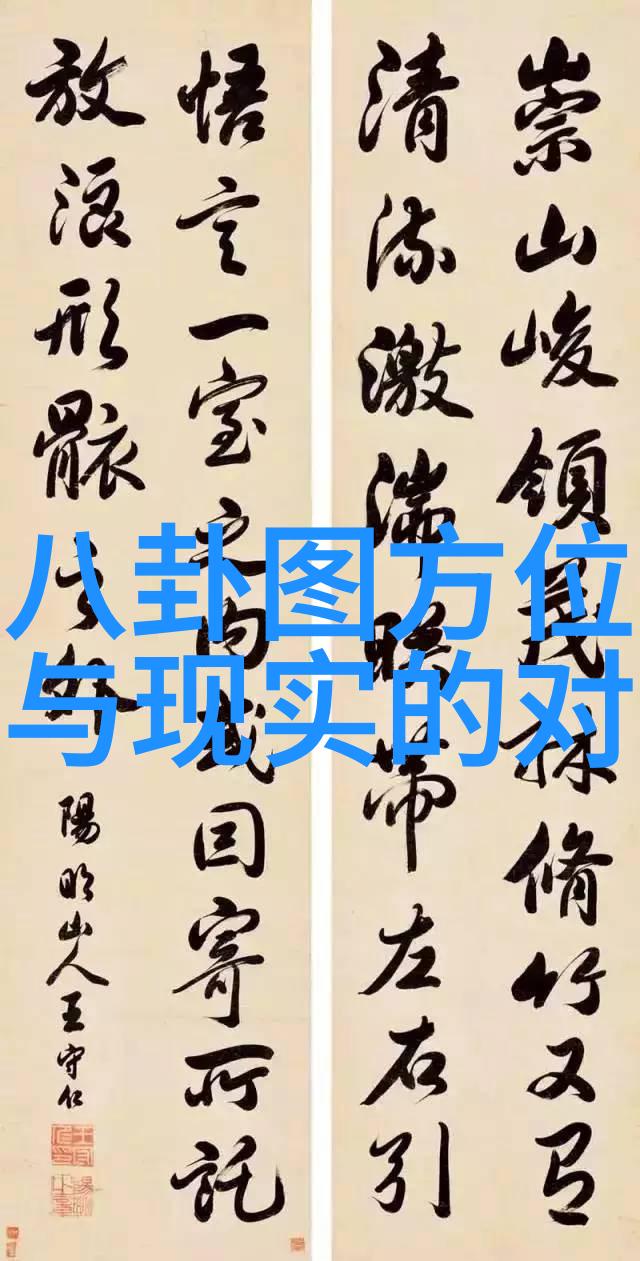 八卦图方位
与现实的对
崇山峻領茂林脩竹又有
清流激湍暎帶左右引
悟言一室之内或因寄所託
放浪形骸之外
陽明山人王守仁